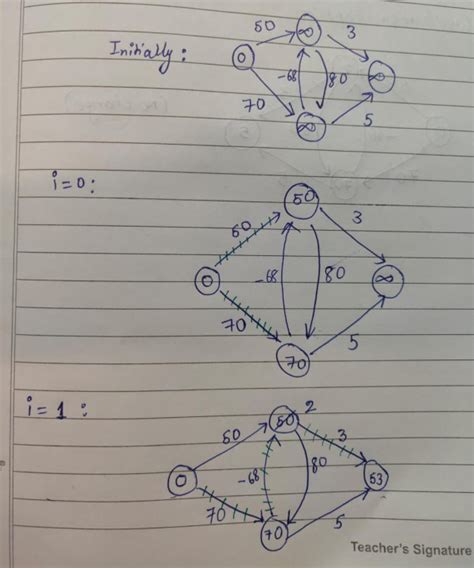 50 ∞ 3
Initially: 0 -68 80 ∞
70 ∞ 5
i=0:
50 50 3
0 -68 80 ∞
70 70 5
i=1:
50 50 2 3
0 -68 80 53
70 70 5
Teacher's Signature